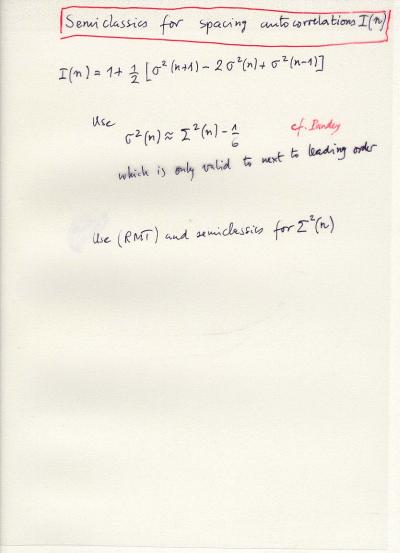 Semiclassics for spacing autocorrelations I(n)
I(n) = 1 + 1/2 [σ²(n+1) - 2σ²(n) + σ²(n-1)]
Use
σ²(n) ≈ Σ²(n) - 1/6 cf. Pandey
which is only valid to next to leading order
Use (RMT) and semiclassics for Σ²(n)